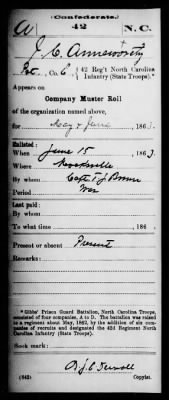 (Confederate.)
A 42 N.C.
J. C.
Pvt., Co. C, 42 Reg't North Carolina
Infantry (State Troops).*
Appears on
Company Muster Roll
of the organization named above,
for May & June, 1863.
Enlisted:
When June 15, 1863.
Where Mocksville
By whom Capt. T. J. Brown
Period War
Last paid:
By whom
To what time , 186 .
Present or absent Present
Remarks:
*Gibbs' Prison Guard Battalion, North Carolina Troops,
consisted of four companies, A to D. The battalion was raised
to a regiment about May, 1862, by the addition of six com-
panies of recruits and designated the 42d Regiment North
Carolina Infantry (State Troops).
Book mark:
(642)
Copyist.